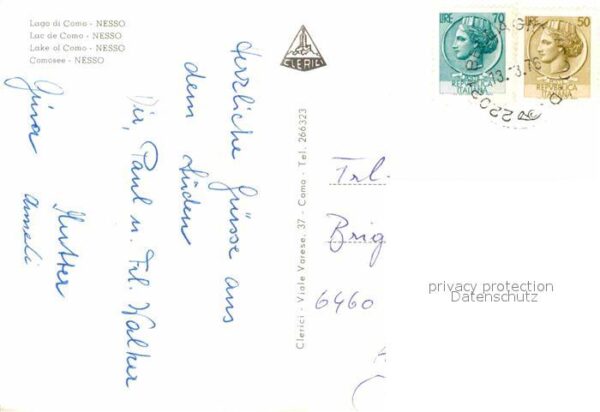 Lago di Como - NESSO
Lac de Como - NESSO
Lake of Como - NESSO
Comosee - NESSO
CLERICI
LIRE 70
REPVBBLICA
ITALIANA
LIRE 50
REPVBBLICA
ITALIANA
13.-3.76
Herzliche Grüsse aus
dem Süden
Dir, Paul u. Frl. Walker
Mutter
Gina Anneli
Clerici - Viale Varese, 37 - Como - Tel. 266323
Frl.
Brig
6460
privacy protection
Datenschutz